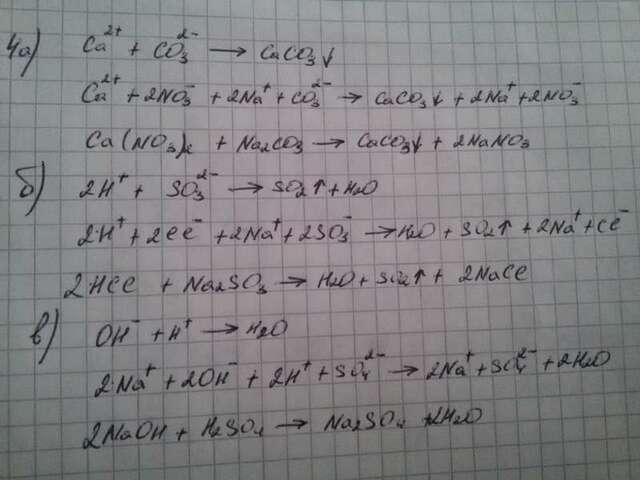 4а) Ca²⁺ + CO₃²⁻ → CaCO₃↓
Ca²⁺ + 2NO₃⁻ + 2Na⁺ + CO₃²⁻ → CaCO₃↓ + 2Na⁺ + 2NO₃⁻
Ca(NO₃)₂ + Na₂CO₃ → CaCO₃↓ + 2NaNO₃
б) 2H⁺ + SO₃²⁻ → SO₂↑ + H₂O
2H⁺ + 2Cl⁻ + 2Na⁺ + 2SO₃⁻ → H₂O + SO₂↑ + 2Na⁺ + Cl⁻
2HCl + Na₂SO₃ → H₂O + SO₂↑ + 2NaCl
в) OH⁻ + H⁺ → H₂O
2Na⁺ + 2OH⁻ + 2H⁺ + SO₄²⁻ → 2Na⁺ + SO₄²⁻ + 2H₂O
2NaOH + H₂SO₄ → Na₂SO₄ + 2H₂O